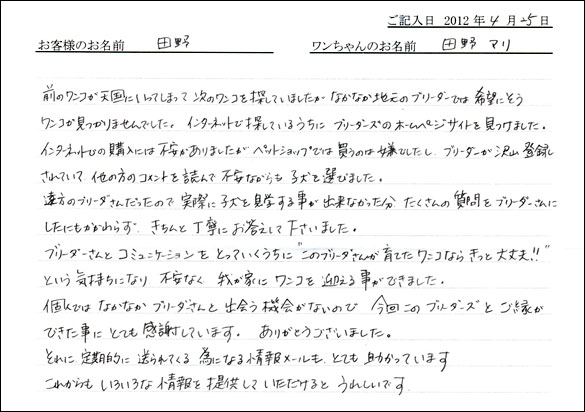 ご記入日 2012年4月25日
お客様のお名前 田野 ワンちゃんのお名前 田野 マリ
前のワンコが天国にいってしまって 次のワンコを探していましたが なかなか地元のブリーダーでは 希望にそう
ワンコが見つかりませんでした。インターネットで探しているうちに ブリーダーズのホームページサイトを見つけました。
インターネットでの購入には不安がありましたが ペットショップでは 買うのは嫌でしたし、ブリーダーが沢山 登録
されていて 他の方のコメントを読んで 不安ながらも 子犬を選びました。
遠方のブリーダさんだったので 実際に子犬を見学する事が 出来なかった分 たくさんの 質問をブリーダーさんに
したにもかかわらず、きちんと 丁寧に お答えして 下さいました。
ブリーダーさんと コミュニケーションを とっていくうちに "このブリーダさんが 育てたワンコなら きっと 大丈夫!!"
という 気持ちになり 不安なく 我が家に ワンコを 迎える事ができました。
個人では なかなか ブリーダさんと 出会う機会がないので 今回 この ブリーダーズと ご縁が
できた事に とても 感謝しています。 ありがとうございました。
それに 定期的に 送られてくる 為になる情報メールも とても 助かっています
これからも いろいろな 情報を 提供して いただけると うれしいです